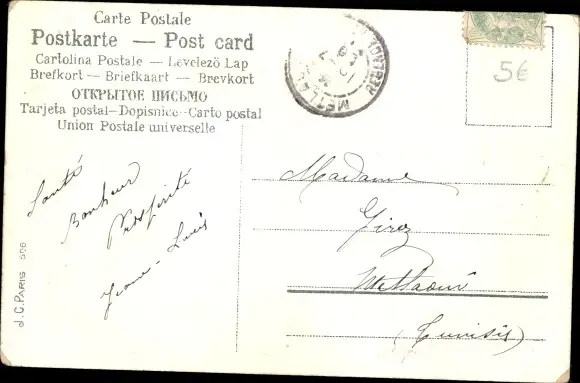 Carte Postale
Postkarte — Post card
Cartolina Postale – Levelező Lap
Brefkort – Briefkaart – Brevkort
ОТКРЫТОЕ ПИСЬМО
Tarjeta postal–Dopisnice–Carto postal
Union Postale universelle
5€
Santé
Bonheur
Prospérité
Jeanne-Louis
Madame
Girez
Metlaoui
(Tunisie)
J.C. PARIS 506